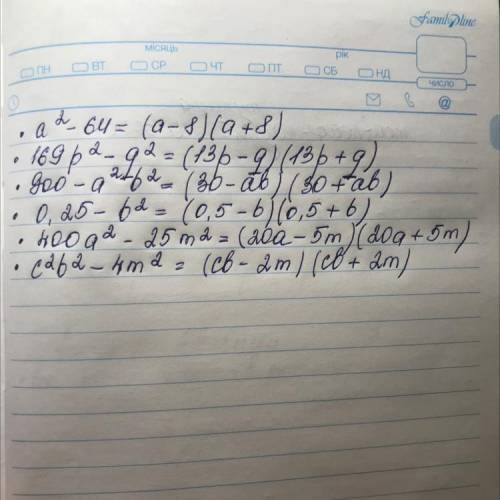 Family line
місяць рік
ПН ВТ СР ЧТ ПТ СБ НД
число
@
• a² - 64 = (a - 8)(a + 8)
• 169p² - q² = (13p - q)(13p + q)
• 900 - a²b² = (30 - ab)(30 + ab)
• 0,25 - b² = (0,5 - b)(0,5 + b)
• 400a² - 25m² = (20a - 5m)(20a + 5m)
• c²b² - 4m² = (cb - 2m)(cb + 2m)